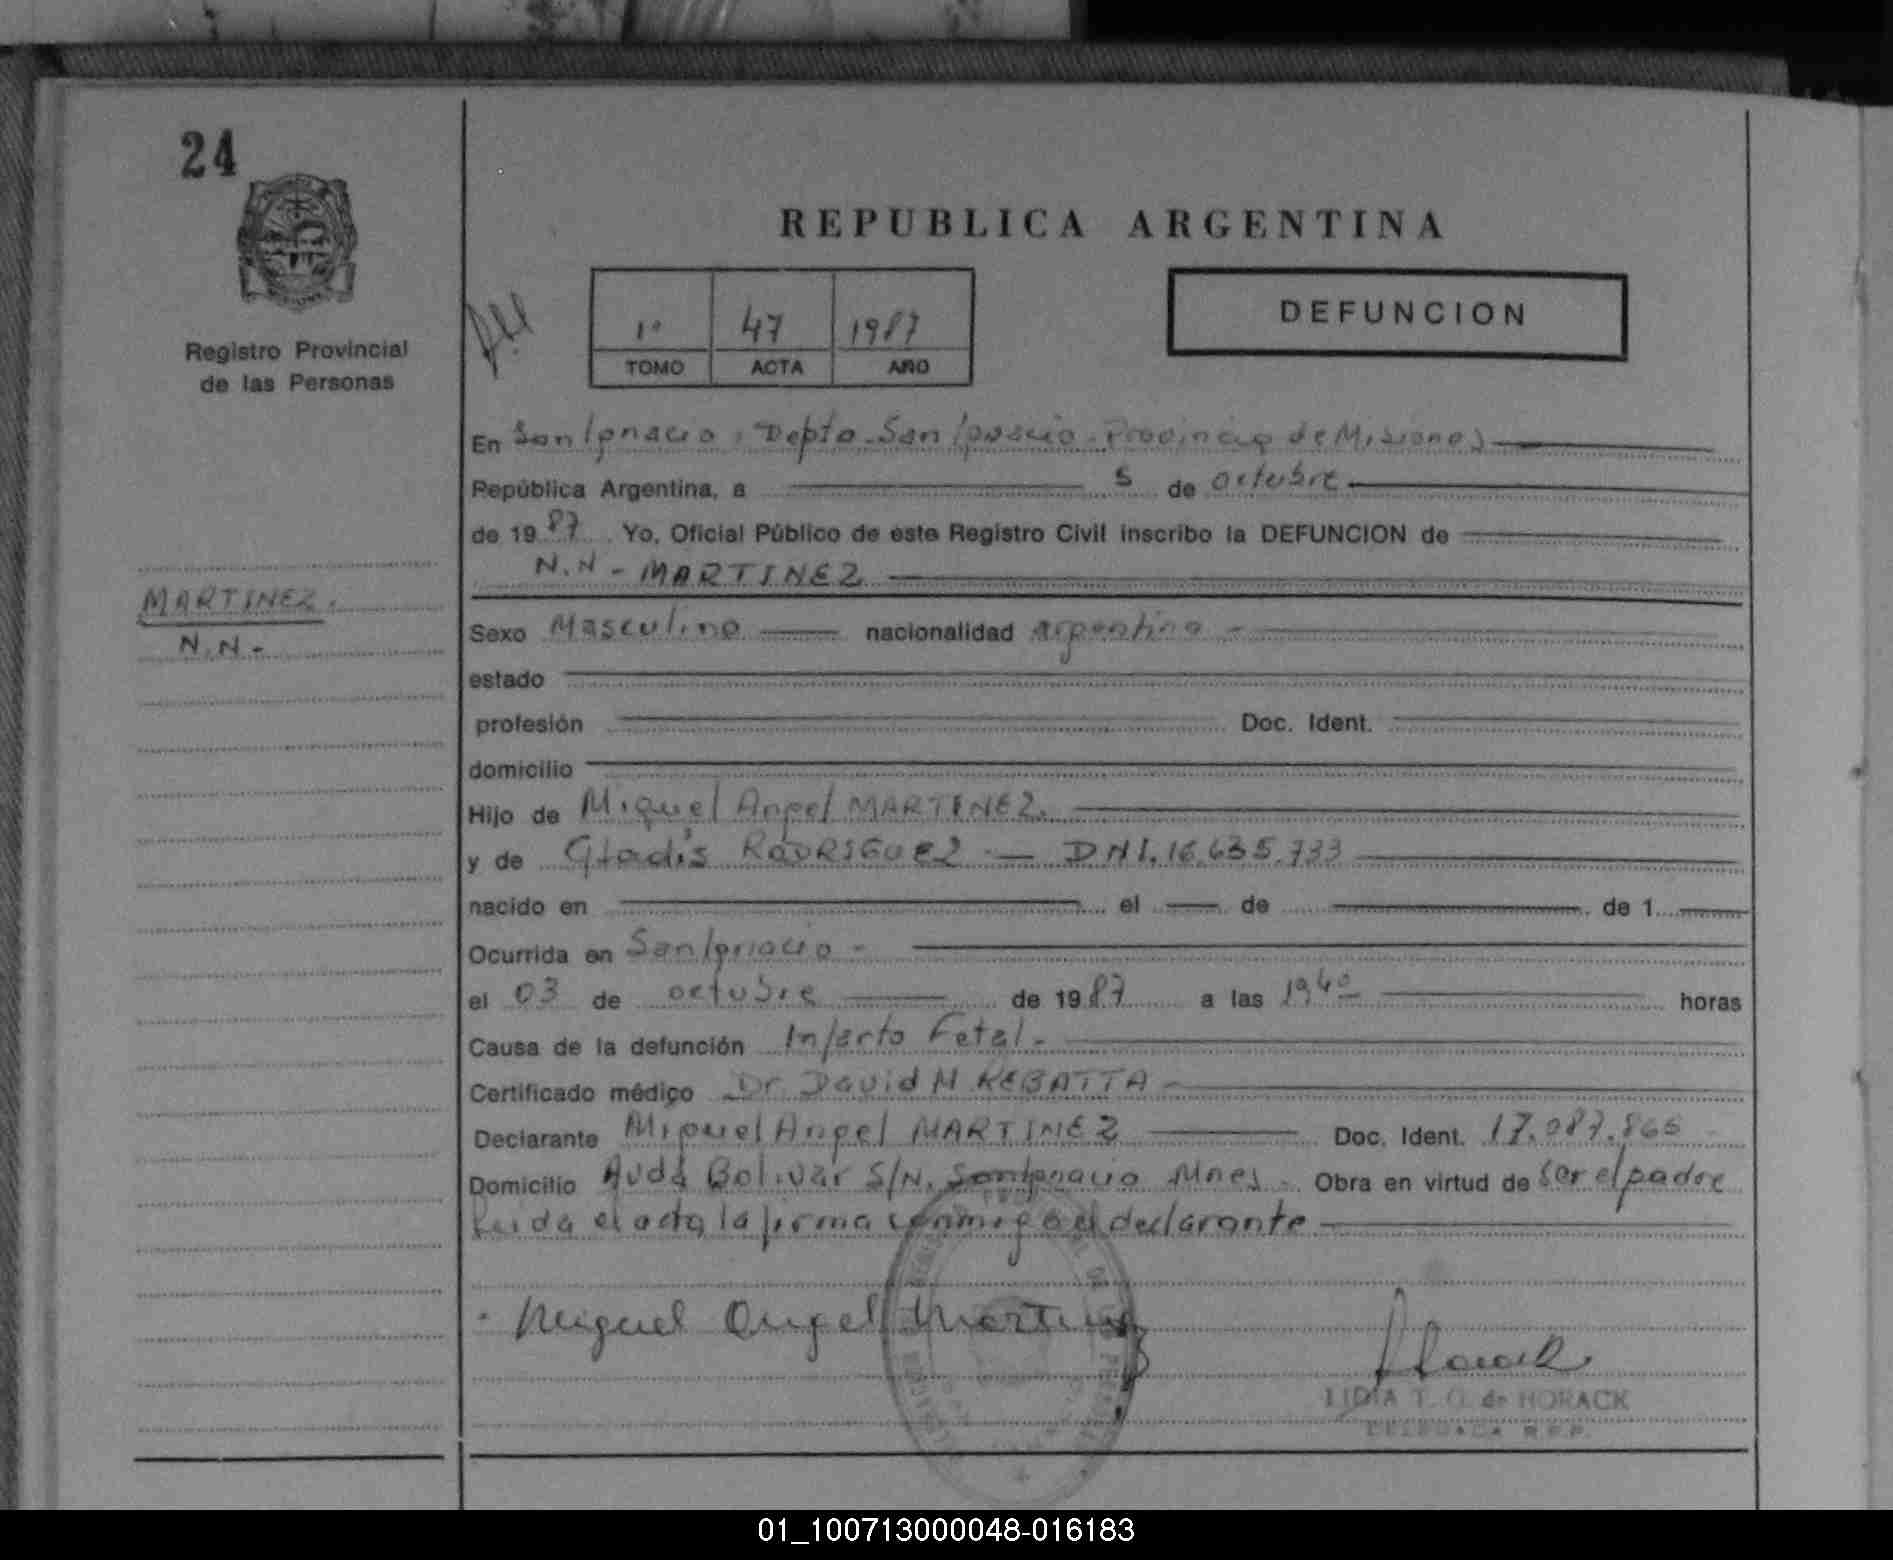 24
REPUBLICA ARGENTINA
Registro Provincial
de las Personas
1º 47 1987
TOMO ACTA AÑO
DEFUNCION
En San Ignacio, Depto. San Ignacio. Provincia de Misiones
República Argentina, a 5 de octubre
de 1987 Yo, Oficial Público de este Registro Civil inscribo la DEFUNCION de
N.N - MARTINEZ
MARTINEZ.
N.N.-
Sexo Masculino nacionalidad argentino -
estado
profesión Doc. Ident.
domicilio
Hijo de Miguel Angel MARTINEZ.
y de Gladis RODRIGUEZ - DNI. 16.635.733
nacido en el de de 1
Ocurrida en San Ignacio -
el 03 de octubre de 1987 a las 19 40 horas
Causa de la defunción Infarto Fetal.-
Certificado médico Dr. David M REBATTA -
Declarante Miguel Angel MARTINEZ Doc. Ident. 17.087.865
Domicilio Avda Bolivar S/N. San Ignacio Mnes - Obra en virtud de ser el padre
Leida el acta la firma conmigo el declarante
Miguel Angel Martinez
Horack
LIDIA T. G. de HORACK
DELEGADA R.P.P.
01_100713000048-016183